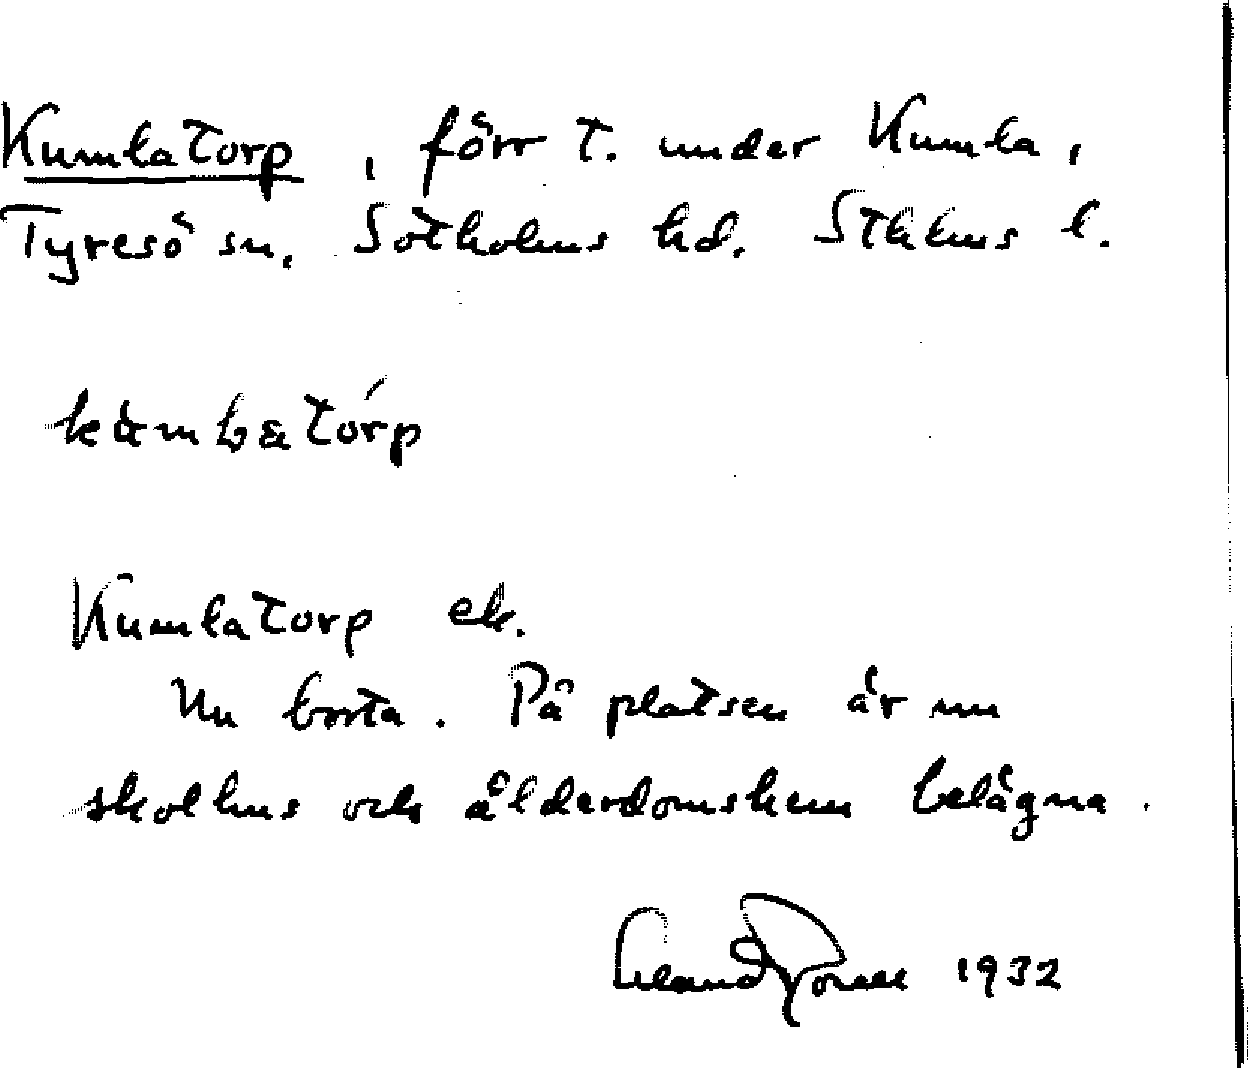 Kumlatorp, förr t. under Kumla,
Tyresö sn, Sotholms hd. Sthlms l.
Kumlatorp ek.
Nu borta. På platsen är nu
skolhus och ålderdomshem belägna.
1932